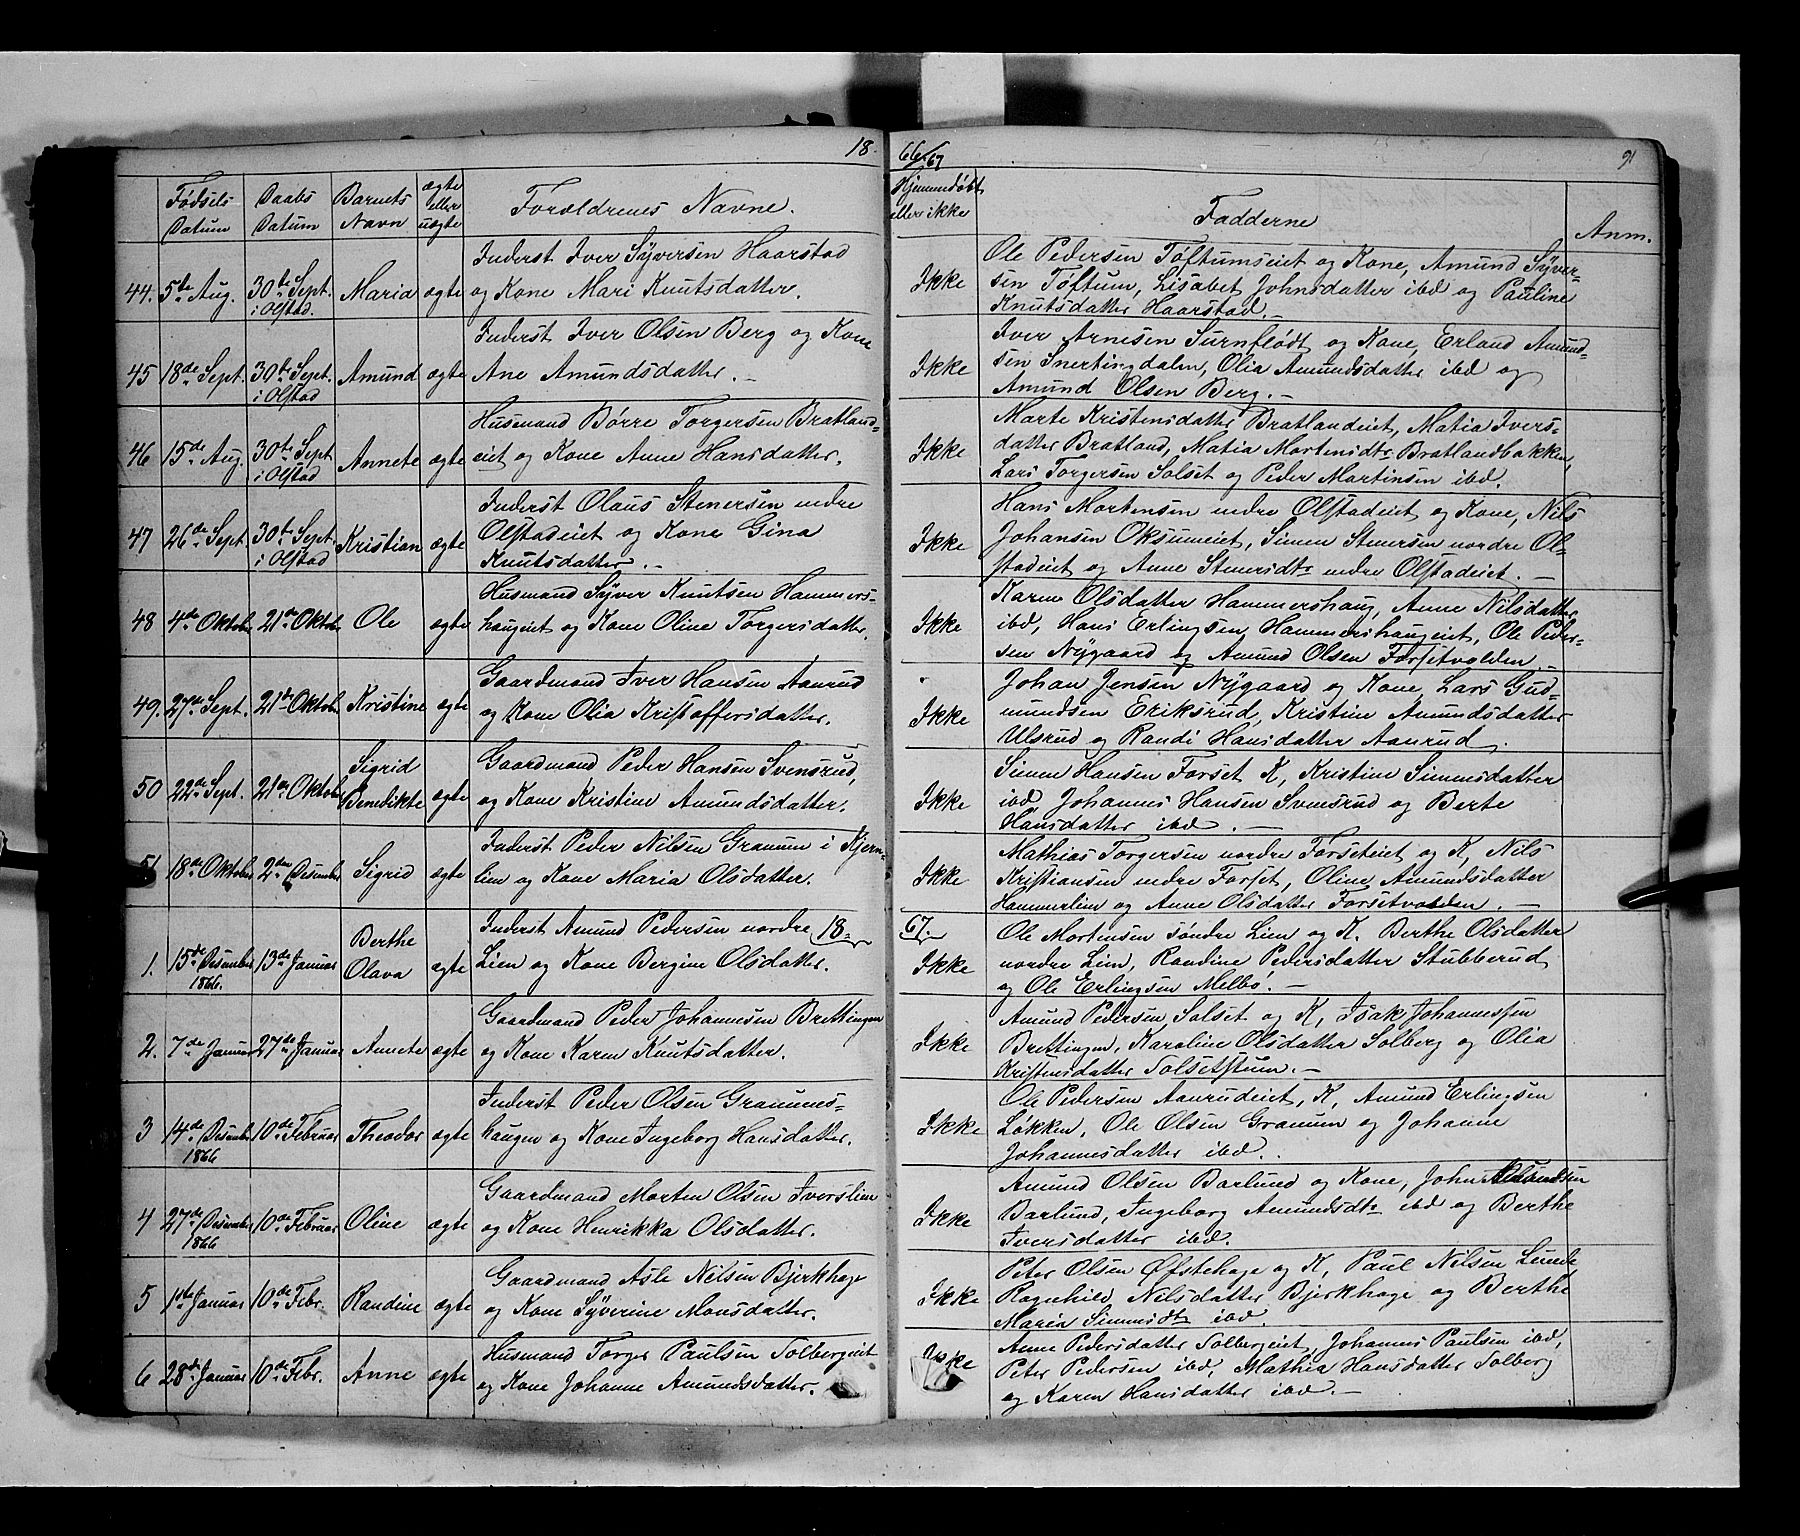 18
66/67
91
Fødsels Datum
Daabs Datum
Barnets Navn
ægte eller uægte
Forældrenes Navne.
Hjemmedøbt eller ikke
Fadderne
Anm.
44. 5te Aug. 30te Sept. i Olstad. Maria ægte
Inderst Iver Syversen Haarstad
og Kone Mari Knutsdatter.
Ikke
Ole Pedersen Tøftumseiet og Kone, Amund Syver-
sen Tøftum, Lisabet Johnsdatter ibd og Pauline
Knutsdatter Haarstad.
45 18de Sept. 30te Sept. i Olstad Amund ægte
Inderst Iver Olsen Berg og Kone
Ane Amundsdatter.
Ikke
Iver Arnesen Surnflødt og Kone, Erland Amund-
sen Snertingdalen, Olia Amundsdatter ibd og
Amund Olsen Berg.
46 15de Aug. 30te Sept i Olstad Annete ægte
Husmand Børre Torgersen Bratland-
eiet og Kone Anne Hansdatter.
Ikke
Marte Kristensdatter Bratlandeiet, Matia Ivers-
datter Bratland, Matia Mortensdtr Bratlandbakken,
Lars Torgersen Solset og Peder Martinsen ibd.
47 26de Sept. 30te Sept. i Olstad Kristian ægte
Inderst Olaus Stenersen nedre
Olstadeiet og Kone Gina
Knutsdatter.
Ikke
Hans Mortensen nedre Olstadeiet og Kone, Nils
Johansen Oksumeiet, Simen Stenersen nordre Ol-
stadeiet og Anne Stenersdtr nedre Olstadeiet.
48 4de Oktober 21de Oktob. Ole ægte
Husmand Syver Knutsen Hammers-
haugeiet og Kone Oline Torgersdatter.
Ikke
Karen Olsdatter Hammershaug, Anne Nilsdatter
ibd, Hans Erlingsen Hammershaugeiet, Ole Peder-
sen Nygaard og Amund Olsen Forsetvolden.
49. 27de Sept. 21de Oktob. Kristine ægte
Gaardmand Iver Hansen Aanrud
og Kone Olia Kristoffersdatter.
Ikke
Johan Jensen Nygaard og Kone, Lars Gud-
mundsen Eriksrud, Kristine Amundsdatter
Ulsrud og Randi Hansdatter Aanrud.
50 22de Sept. 21de Oktober Sigrid Benedikte ægte
Gaardmand Peder Hansen Svensrud,
og Kone Kristine Amundsdatter.
Ikke
Simen Hansen Forset K, Kristine Simensdatter
ibd, Johannes Hansen Svensrud og Berte
Hansdatter ibd.
51 18de Oktober 2den Desember Sigrid ægte
Inderst Peder Nilsen Granum i Kjern-
lien og Kone Maria Olsdatter.
Ikke
Mathias Torgersen nordre Forseteiet og K, Nils
Kristiansen nedre Forset, Oline Amundsdatter
Hammerlien og Anne Olsdatter Forsetvolden.
1867.
1. 15de Desember 1866. 13de Januar Berthe Olava ægte
Inderst Amund Pedersen nordre
Lien og Kone Bergine Olsdatter.
Ikke
Ole Mortensen søndre Lien og K. Berthe Olsdatter
nordre Lien, Randine Pedersdatter Stubberud
og Ole Erlingsen Melbø.
2. 7de Januar 27de Januar Annete ægte
Gaardmand Peder Johannesen Brettingen
og Kone Karen Knutsdatter.
Ikke
Amund Pedersen Solset og K, Isak Johannessen
Brettingen, Karoline Olsdatter Solberg og Olia
Kristensdatter Solsetstuen.
3 14de Desember 1866 10de Februar Theodor ægte
Inderst Peder Olsen Granums-
haugen og Kone Ingeborg Hansdatter.
Ikke
Ole Pedersen Aanrudeiet, K, Amund Erlingsen
Løkken, Ole Olsen Granum og Johanne
Johannesdatter ibd.
4 27de Desember 1866 10de Februar Oline ægte
Gaardmand Morten Olsen Iverslien
og Kone Henrikka Olsdatter.
Ikke
Amund Olsen Barlund og Kone, John Amundsen
Barlund, Ingeborg Amundsdtr ibd og Berthe
Iversdatter ibd.
5 1ste Januar 10de Febr. Randine ægte
Gaardmand Asle Nilsen Bjerkhage
og Kone Syverine Monsdatter.
Ikke
Peter Olsen Øfstehage og K, Paul Nilsen Lunde
Ragnhild Nilsdatter Bjerkhage og Berthe
Maria Simensdtr ibd.
6 28de Januar 10de Febr. Anne ægte
Husmand Torger Paulsen Solbergeiet
og Kone Johanne Amundsdatter.
Ikke
Anne Pedersdatter Solbergeiet, Johannes Paulsen ibd,
Peter Pedersen ibd, Mathia Hansdatter Solberg
og Karen Hansdatter ibd.